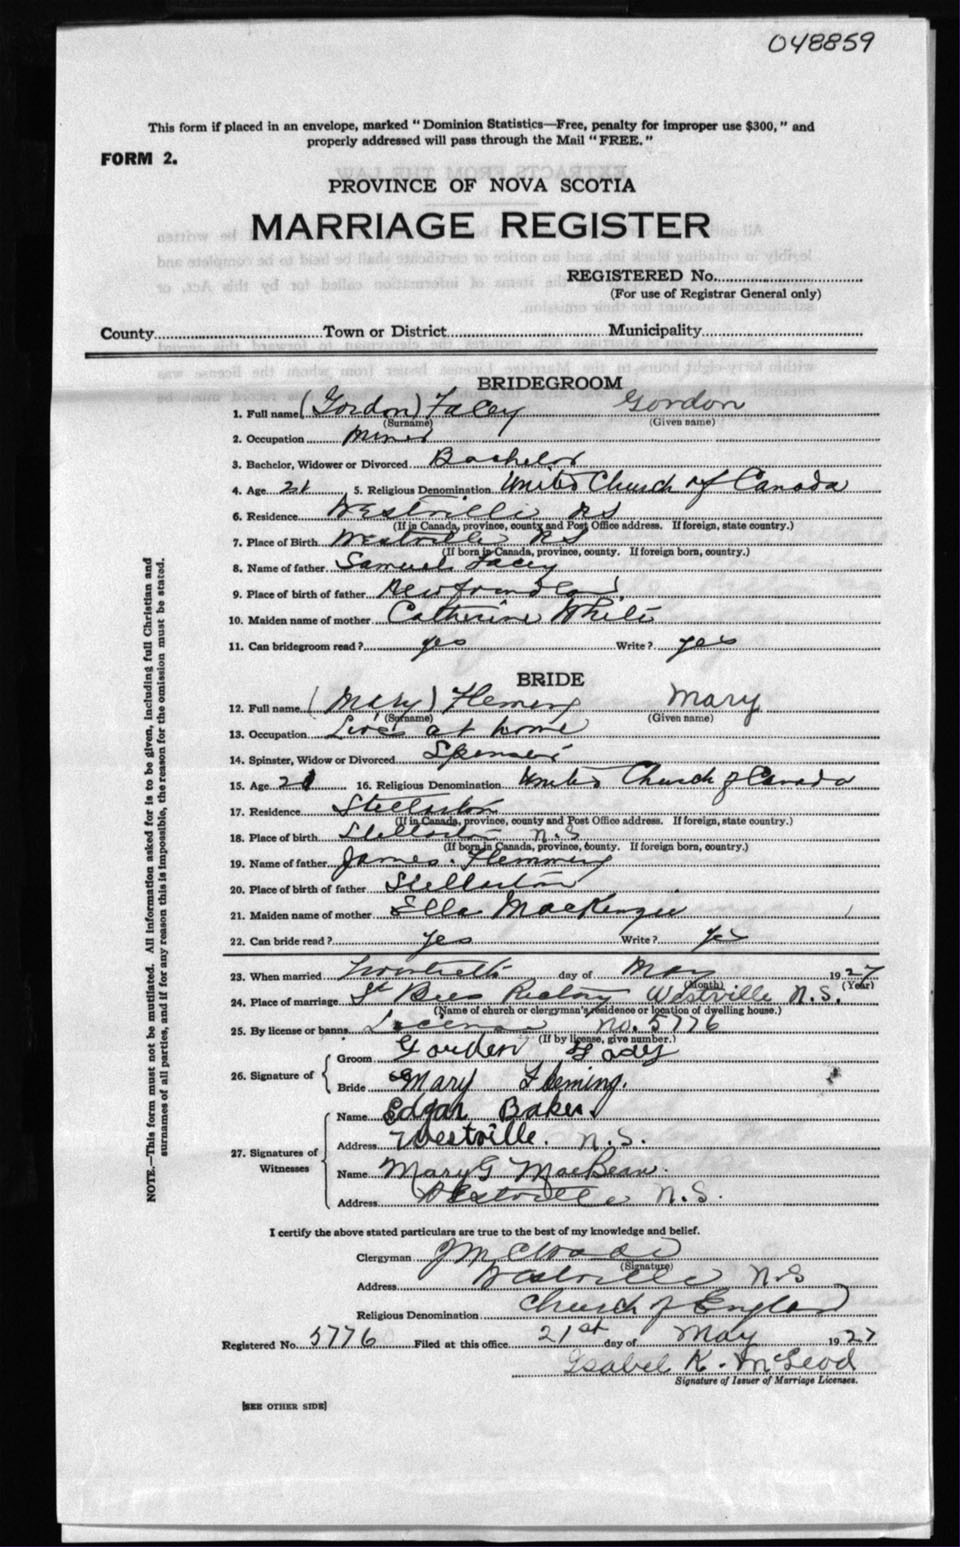 048859
This form if placed in an envelope, marked "Dominion Statistics—Free, penalty for improper use $300," and
properly addressed will pass through the Mail "FREE."
FORM 2.
PROVINCE OF NOVA SCOTIA
MARRIAGE REGISTER
REGISTERED No.
(For use of Registrar General only)
County Town or District Municipality
BRIDEGROOM
1. Full name (Gordon) Facey Gordon
(Surname) (Given name)
2. Occupation Miner
3. Bachelor, Widower or Divorced Bachelor
4. Age 21 5. Religious Denomination United Church of Canada
6. Residence Westville NS
(If in Canada, province, county and Post Office address. If foreign, state country.)
7. Place of Birth Westville NS
(If born in Canada, province, county. If foreign born, country.)
8. Name of father Samuel Facey
9. Place of birth of father Newfoundland
10. Maiden name of mother Catherine White
11. Can bridegroom read? yes Write? yes
BRIDE
12. Full name (Mary) Flemery Mary
(Surname) (Given name)
13. Occupation Lives at home
14. Spinster, Widow or Divorced Spinster
15. Age 21 16. Religious Denomination United Church of Canada
17. Residence Stellarton
(If in Canada, province, county and Post Office address. If foreign, state country.)
18. Place of birth Stellarton N.S
(If born in Canada, province, county. If foreign born, country.)
19. Name of father James. Flemmery
20. Place of birth of father Stellarton
21. Maiden name of mother Ella MacKenzie
22. Can bride read? yes Write? yes
23. When married Twentieth day of May 1927
(Month) (Year)
24. Place of marriage St Bees Rectory Westville N.S.
(Name of church or clergyman's residence or location of dwelling house.)
25. By license or banns License No. 5776
(If by license, give number.)
26. Signature of
Groom Gorden
Bride Mary Fleming.
27. Signatures of Witnesses
Name Edgar Baker
Address Westville. N.S.
Name Mary G MacBean.
Address Westville N.S.
I certify the above stated particulars are true to the best of my knowledge and belief.
Clergyman
(Signature)
Address Westville N.S
Religious Denomination Church of England
Registered No. 5776 Filed at this office 21st day of May 1927
Isabel K. McLeod
Signature of Issuer of Marriage Licenses.
[SEE OTHER SIDE]
NOTE.—This form must not be mutilated. All information asked for is to be given, including full Christian and
surnames of all parties, and if for any reason this is impossible, the reason for the omission must be stated.